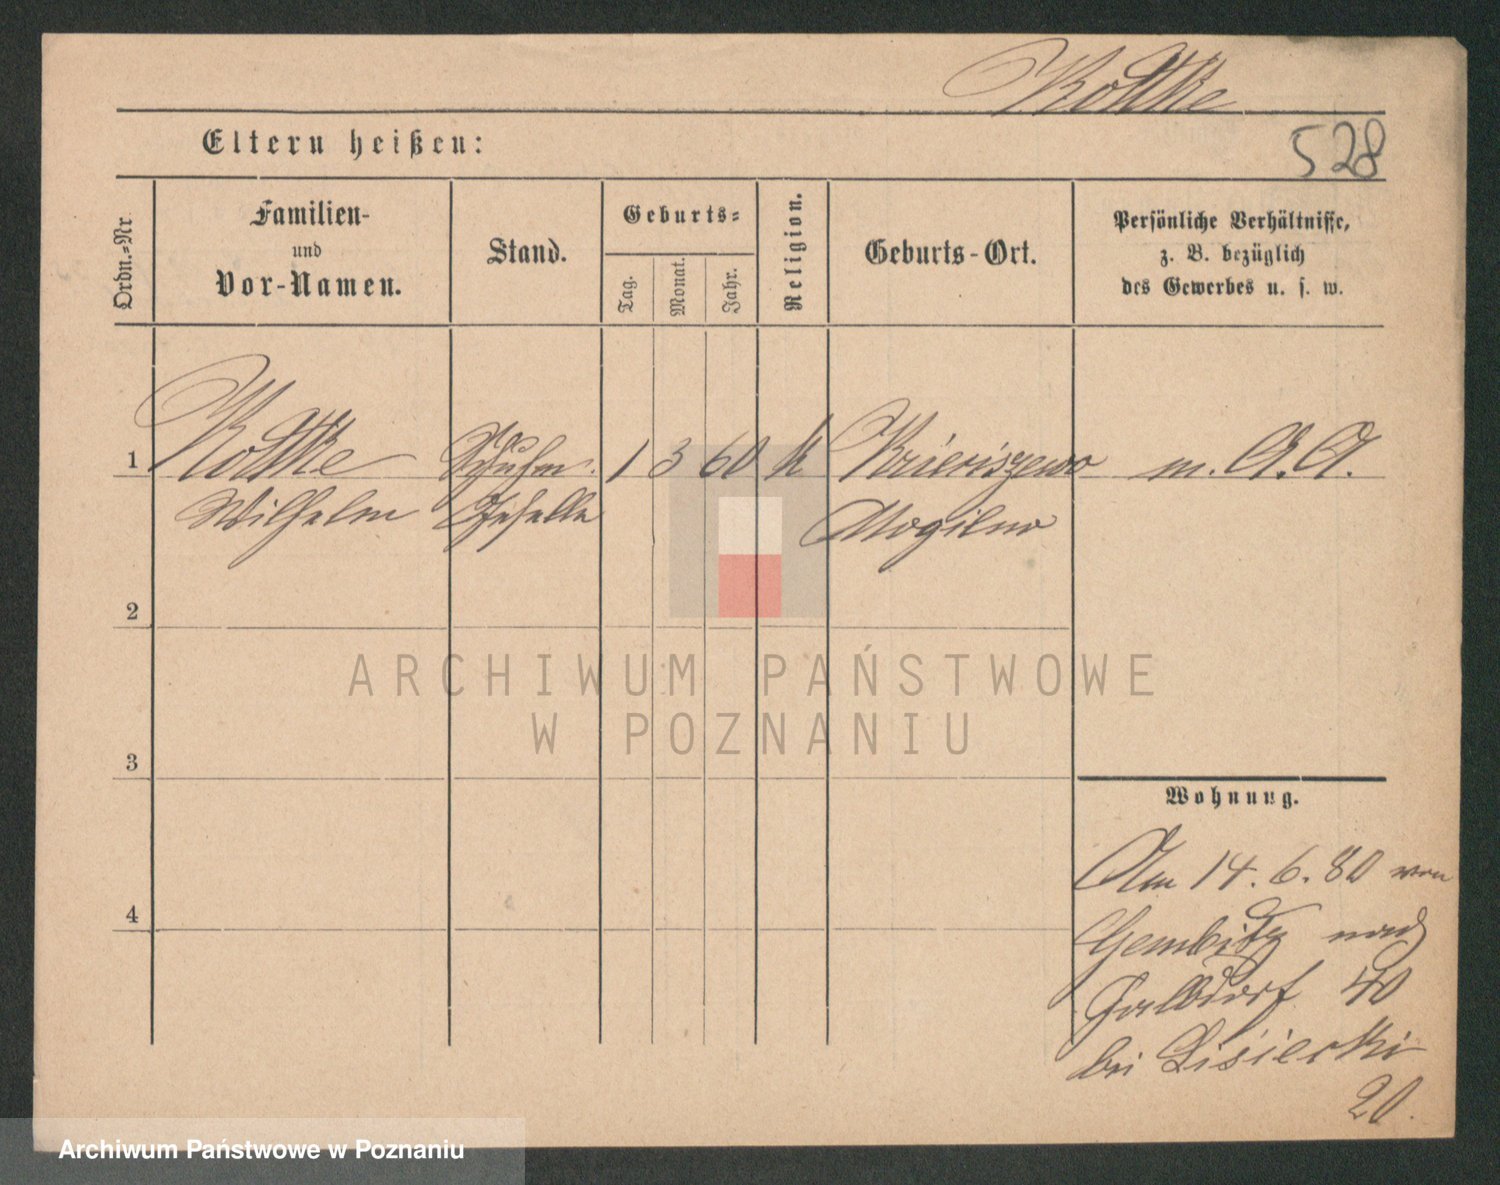 Kottke
Eltern heißen:
528
Ordn.-Nr
Familien-
und
Vor-Namen.
Stand.
Geburts-
Tag.
Monat.
Jahr.
Religion.
Geburts-Ort.
Persönliche Verhältnisse,
z. B. bezüglich
des Gewerbes u. s. w.
1 Kottke Schuhm. 1 3 60 k m. A.A.
Wilhelm Geselle Mogilno
2
3
4
ARCHIWUM PAŃSTWOWE
W POZNANIU
Wohnung.
Am 14. 6. 80 von
Gembitz nach
40
bei Lisiecki
20.
Archiwum Państwowe w Poznaniu